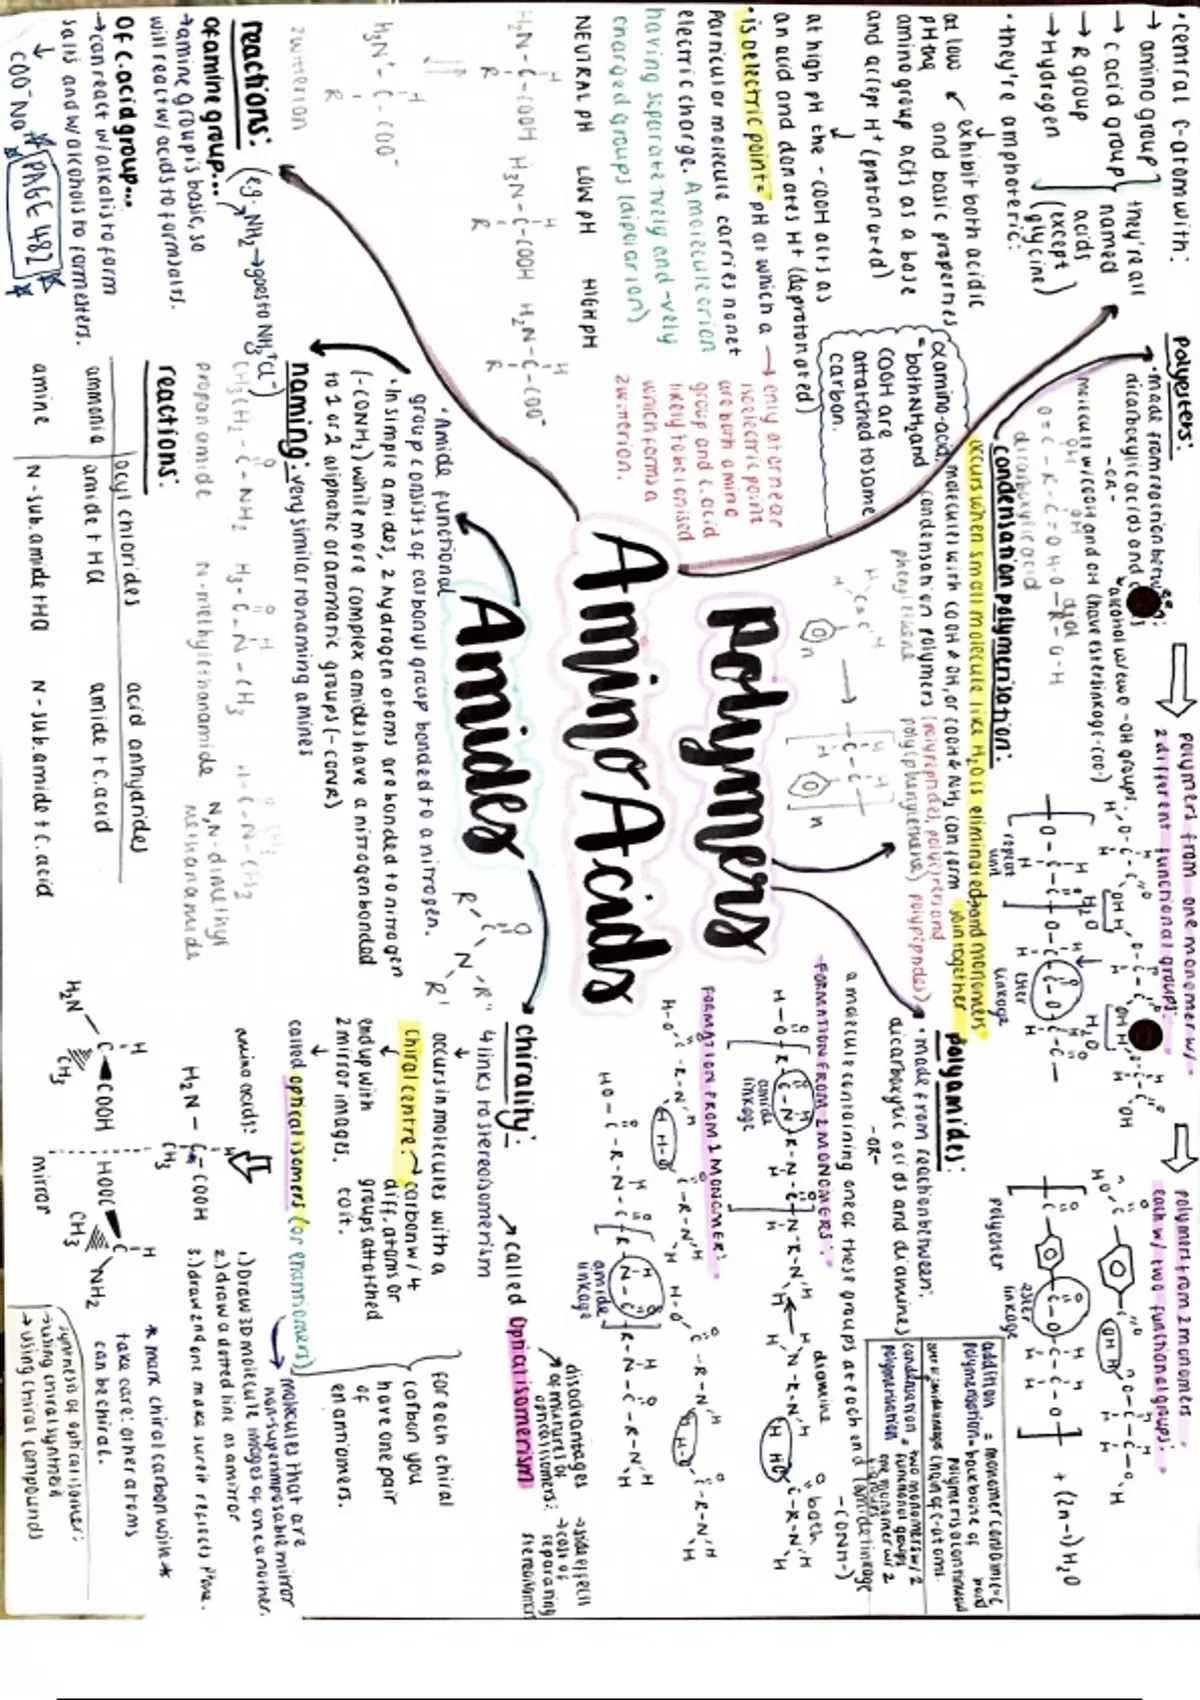 • central C-atom with:
→ amino group
→ c acid group
→ R group
→ Hydrogen
they're all
named
acids
(except
glycine)
• they're amphoteric:
exhibit both acidic
and basic properties
at low
pH the
amino group acts as a base
and accept H⁺ (protonated)
at high pH the -COOH acts as
an acid and donates H⁺ (deprotonated)
• isoelectric point = pH at which a
particular molecule carries no net
electric charge. A molecule or ion
having separate +vely and -vely
charged groups (dipolar ion)
→ only at or near
isoelectric point
are both amino
group and c. acid
likely to be ionised
which forms a
zwitterion.
α amino-acid
= both NH₂ and
COOH are
attatched to same
carbon.
NEUTRAL pH LOW pH HIGH pH
H₂N-C-COOH H₃N-C-COOH H₂N-C-COO⁻
H₃N⁺-C-COO⁻
zwitterion
reactions:
of amine group...
→ amine group is basic, so
will react w/ acids to form salts.
(eg. NH₂ → goes to NH₃⁺Cl⁻)
of c.acid group...
→ can react w/ alkalis to form
salts and w/ alcohols to form esters.
COO⁻Na⁺
PAGE 482
Polymers
Amino Acids
Amides
polyesters:
• made from reaction between:
dicarboxylic acids and
-OR-
molecule w/ COOH and OH (have ester linkage -COO-)
alcohol w/ two -OH groups.
dicarboxylic acid
diol
condensation polymerisation:
occurs when small molecule like H₂O is eliminated and monomers
join together
molecules with COOH & OH, or COOH & NH₂ can form
condensation polymers (polypeptides, polyesters and
polypeptides)
phenylethene
poly(phenylethene)
polymers from one monomer w/
2 different functional groups:
repeat
unit
ester
linkage
polymers from 2 monomers
each w/ two functional groups:
polyester
ester
linkage
+ (2n-1) H₂O
addition
polymerisation
= monomer contains C=C
backbone of
polymer is a continuous
chain of C-atoms.
condensation
polymerisation
= two monomers w/ 2
functional groups
one monomer w/ 2
polyamides:
• made from reaction between:
dicarboxylic acids and diamines
-OR-
a molecule containing one of these groups at each end
(amide linkage
-CONH-)
FORMATION FROM 2 MONOMERS:
amide
linkage
diamine
both
FORMATION FROM 1 MONOMER:
amide
linkage
• Amide functional
group consists of carbonyl group bonded to a nitrogen.
• In simple amides, 2 hydrogen atoms are bonded to nitrogen
(-CONH₂) while more complex amides have a nitrogen bonded
to 1 or 2 aliphatic or aromatic groups (-CONR)
naming: very similar to naming amines
CH₃CH₂-C-NH₂
propanamide
N-methylethanamide
N,N-dimethyl
methanamide
reactions:
acyl chlorides acid anhydrides
ammonia amide + HCl amide + C.acid
amine N-sub.amide + HCl N-sub.amide + C.acid
chirality:
↳ links to stereoisomerism
→ called Optical isomerism
occurs in molecules with a
chiral centre: → carbon w/ 4
diff. atoms or
groups attatched
to it.
end up with
2 mirror images.
called optical isomers (or enantiomers)
for each chiral
carbon you
have one pair
of
enantiomers.
molecules that are
non-superimposable mirror
images of one another.
disadvantages
of mixtures of
optical isomers:
→ side effects
→ cost of
separating
stereoisomers
amino acids:
1.) Draw 3D molecule
2.) draw a dotted line as a mirror
3.) draw 2nd one make sure it reflects 1st one.
H₂N-C-COOH
CH₃
H₂N COOH HOOC NH₂
CH₃ CH₃
mirror
* mark chiral carbon with *
take care: other atoms
can be chiral.
synthesis of optical isomer:
→ using chiral synthesis
→ using chiral compounds